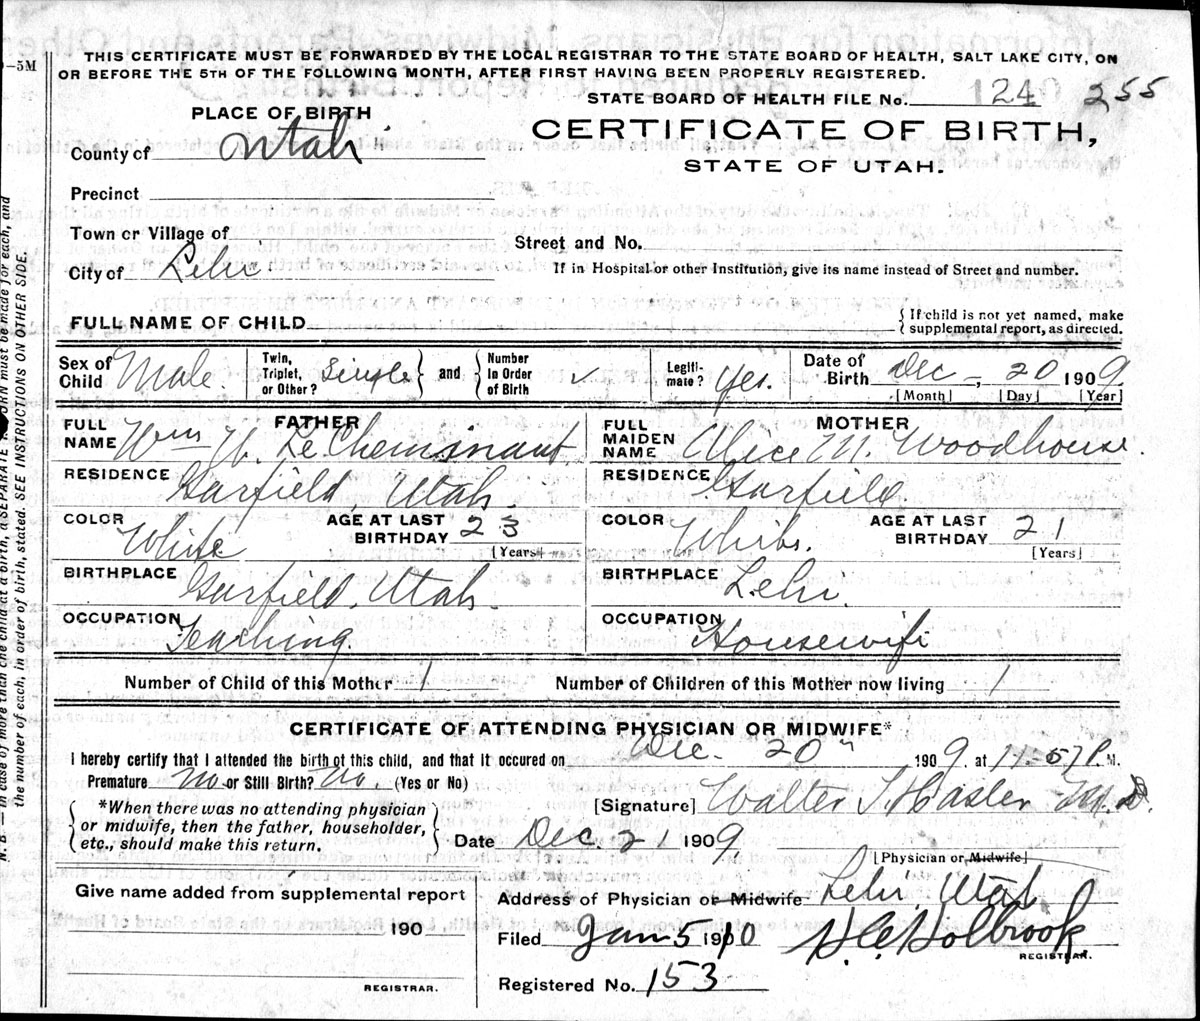 THIS CERTIFICATE MUST BE FORWARDED BY THE LOCAL REGISTRAR TO THE STATE BOARD OF HEALTH, SALT LAKE CITY, ON
-5M
OR BEFORE THE 5TH OF THE FOLLOWING MONTH, AFTER FIRST HAVING BEEN PROPERLY REGISTERED.
STATE BOARD OF HEALTH FILE No. 124 255
PLACE OF BIRTH
CERTIFICATE OF BIRTH,
County of Utah
STATE OF UTAH.
Precinct
Town or Village of
Street and No.
City of Lehi
If in Hospital or other Institution, give its name instead of Street and number.
FULL NAME OF CHILD
{If child is not yet named, make
supplemental report, as directed.
Sex of Child Male. Twin, Triplet, or Other? Single } and { Number in Order of Birth ✓ Legiti-mate? Yes. Date of Birth Dec -, 20 1909
[Month] [Day] [Year]
FATHER
MOTHER
FULL NAME Wm H. Le Cheminant.
FULL MAIDEN NAME Alice M. Woodhouse.
RESIDENCE Garfield, Utah.
RESIDENCE Garfield
COLOR White AGE AT LAST BIRTHDAY 23 [Years]
COLOR White. AGE AT LAST BIRTHDAY 21 [Years]
BIRTHPLACE Garfield, Utah.
BIRTHPLACE Lehi.
OCCUPATION Teaching.
OCCUPATION Housewife
Number of Child of this Mother 1 Number of Children of this Mother now living 1
CERTIFICATE OF ATTENDING PHYSICIAN OR MIDWIFE*
I hereby certify that I attended the birth of this child, and that it occured on Dec. 20th 1909, at 11:57 P. M.
Premature no. or Still Birth? no. (Yes or No)
*When there was no attending physician
or midwife, then the father, householder,
etc., should make this return.
[Signature] Walter T. Hasler M.D.
Date Dec. 21 1909
[Physician or Midwife]
Give name added from supplemental report
Address of Physician or Midwife Lehi, Utah
190
Filed Jan 5 1910 H.C. Holbrook.
REGISTRAR.
REGISTRAR.
Registered No. 153
N. B.—In case of more than one child at a birth, a SEPARATE RETURN must be made for each, and
the number of each, in order of birth, stated. SEE INSTRUCTIONS ON OTHER SIDE.